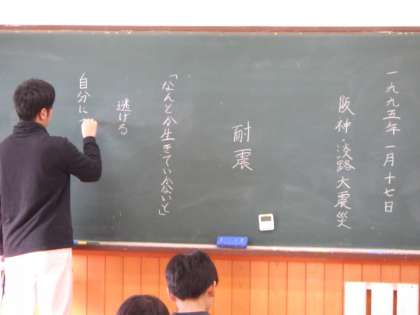 一九九五年 一月十七日
阪神・淡路大震災
耐震
「なんとか生きていかないと」
逃げる
自分に